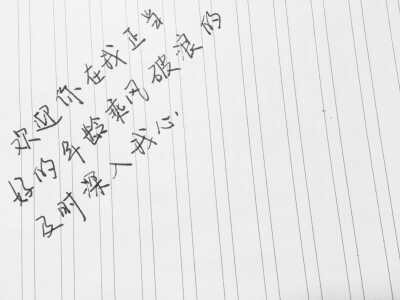 欢迎你在我正当
好的年龄乘风破浪的
及时深入我心